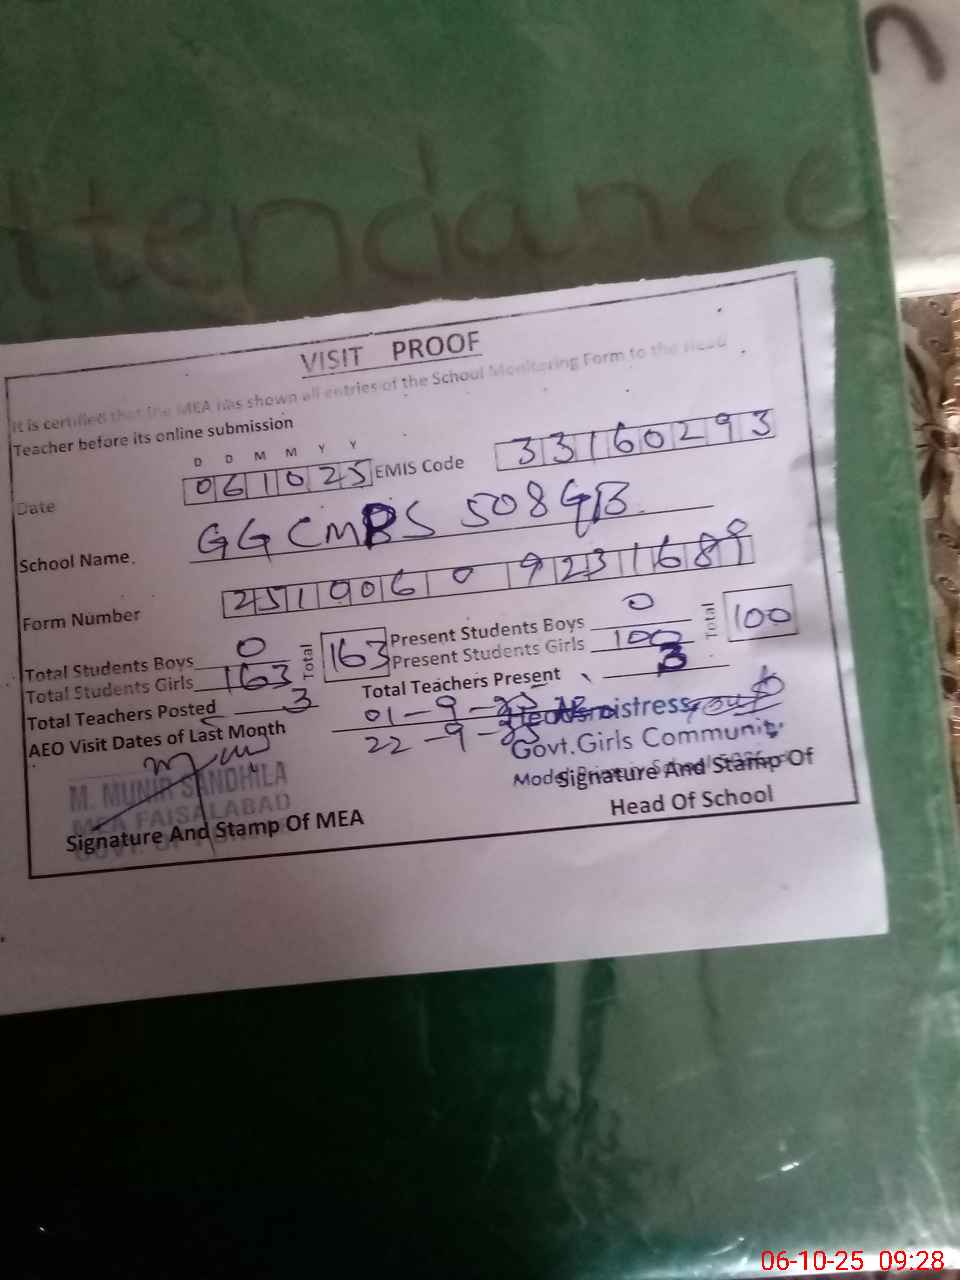 ttendance
VISIT PROOF
It is certified that the MEA has shown all entries of the School Monitoring Form to the Head
Teacher before its online submission
D D M M Y Y
Date 061025 EMIS Code 33160293
School Name. GGCMPS 508 GB
Form Number 2519060 9231689
Total Students Boys 0
Total Students Girls 163
Total 163
Present Students Boys 0
Present Students Girls 100
Total 100
Total Teachers Posted 3
Total Teachers Present 3
AEO Visit Dates of Last Month 01-9-25
22-9-25
M. MUNIR SANDHILA
MEA FAISALABAD
GOVT. OF
Signature And Stamp Of MEA
Headmistress
Govt.Girls Community
Model Primary School
Signature And Stamp Of
Head Of School
06-10-25 09:28